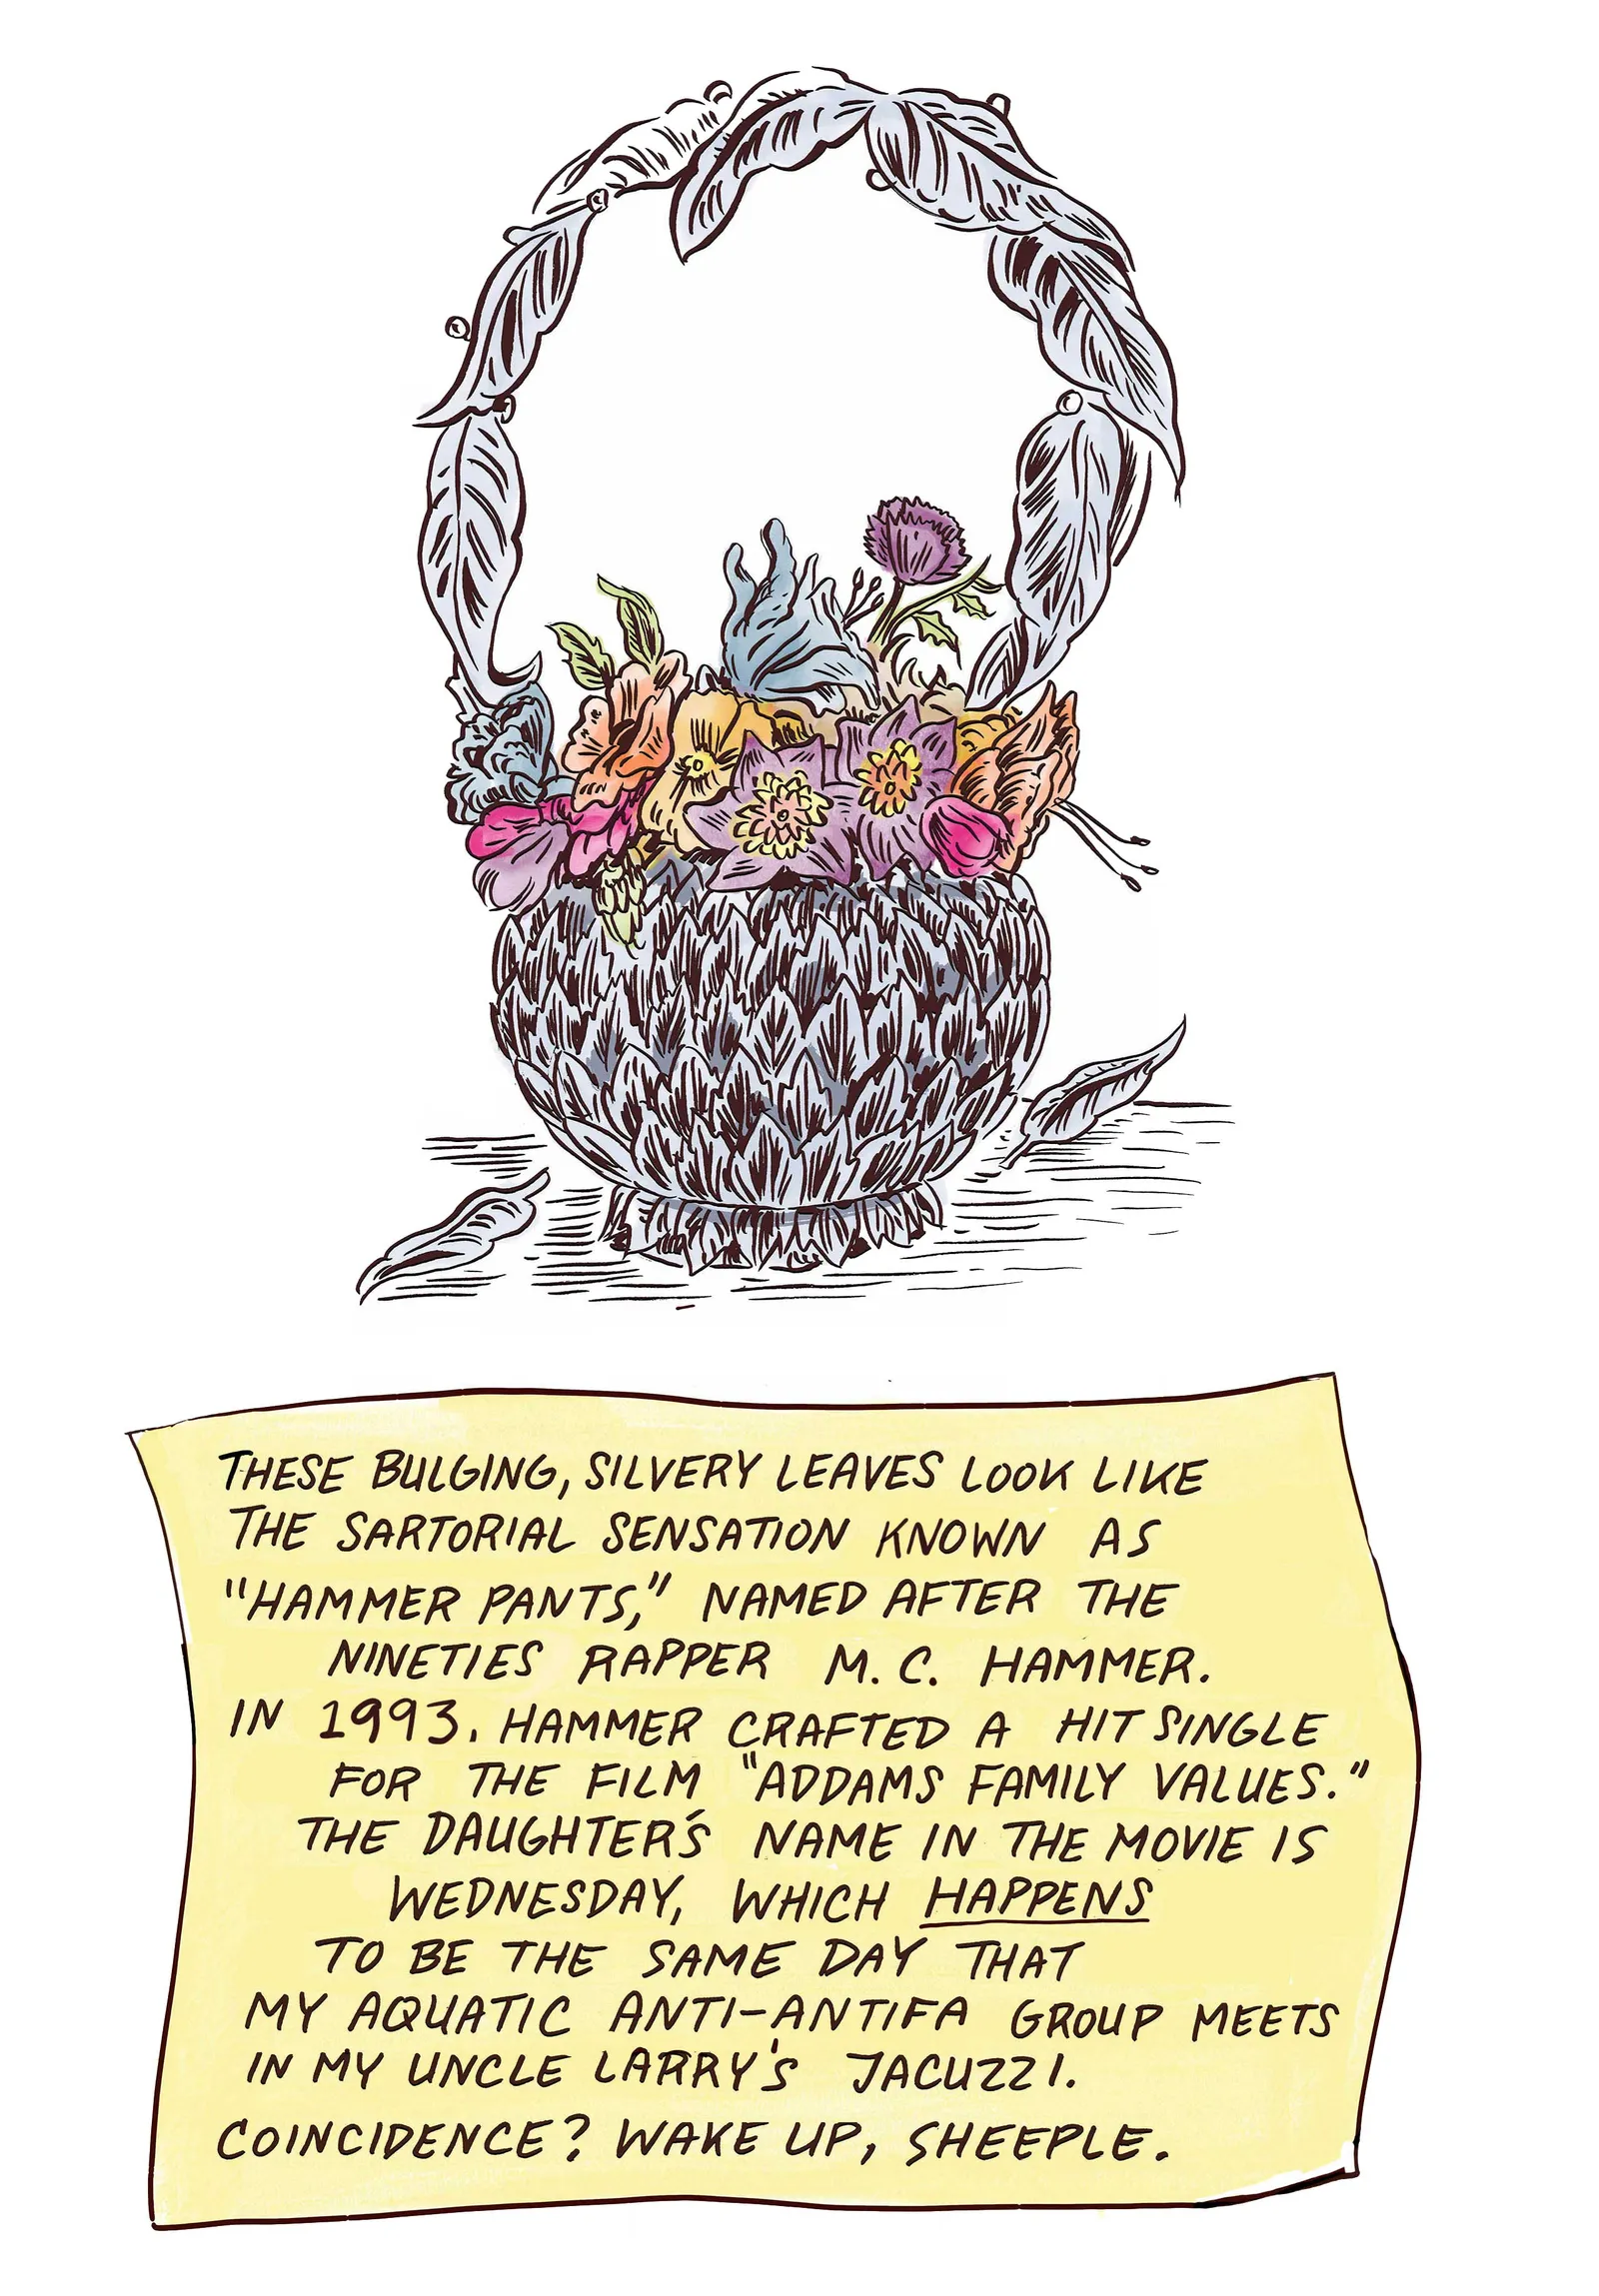 THESE BULGING, SILVERY LEAVES LOOK LIKE
THE SARTORIAL SENSATION KNOWN AS
"HAMMER PANTS," NAMED AFTER THE
NINETIES RAPPER M.C. HAMMER.
IN 1993, HAMMER CRAFTED A HIT SINGLE
FOR THE FILM "ADDAMS FAMILY VALUES."
THE DAUGHTER'S NAME IN THE MOVIE IS
WEDNESDAY, WHICH HAPPENS
TO BE THE SAME DAY THAT
MY AQUATIC ANTI-ANTIFA GROUP MEETS
IN MY UNCLE LARRY'S JACUZZI.
COINCIDENCE? WAKE UP, SHEEPLE.